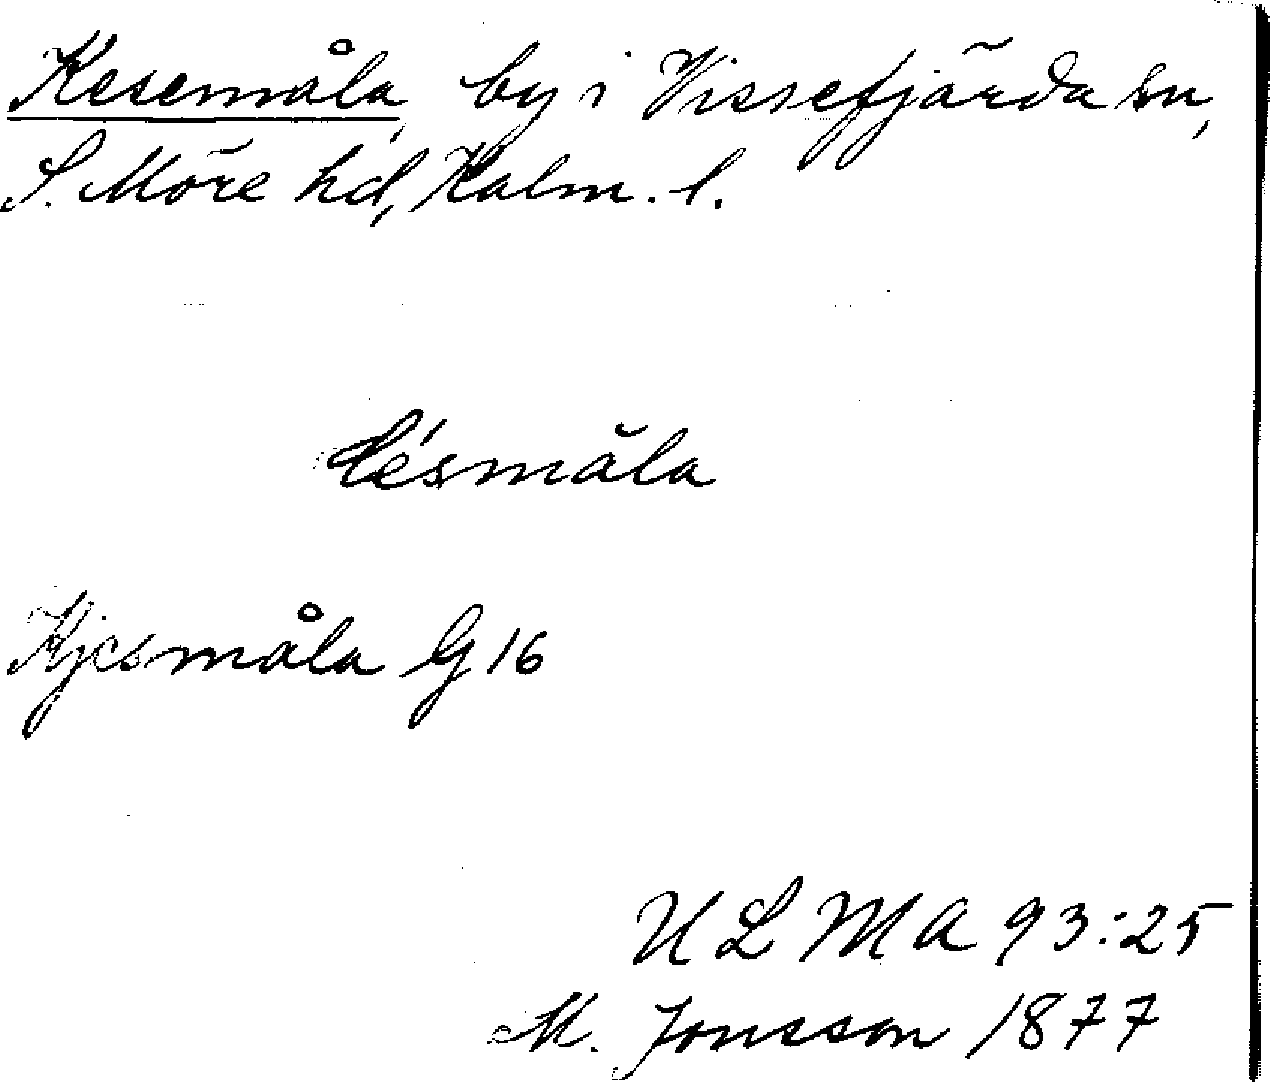 Kesemåla, by i Vissefjärda sn,
S. Möre hd, Kalm. l.
Kjesmåla G 16
ULMA 93:25
M. Jonsson 1877